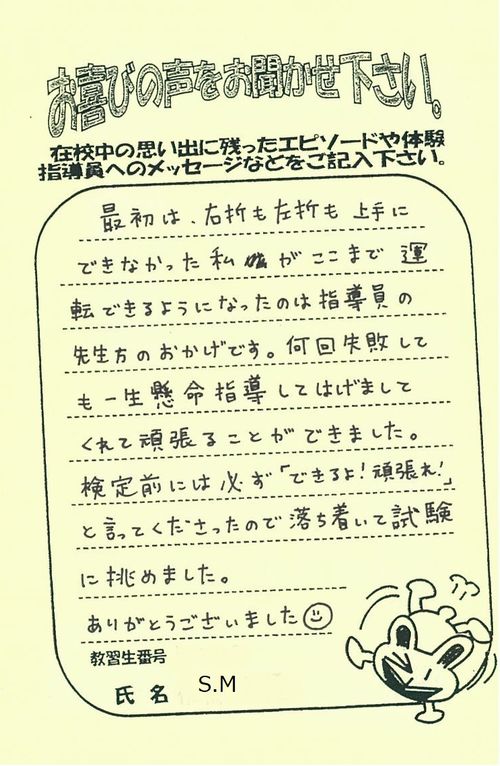 お喜びの声をお聞かせ下さい。
在校中の思い出に残ったエピソードや体験
指導員へのメッセージなどをご記入下さい。
最初は、右折も左折も上手に
できなかった私がここまで運
転できるようになったのは指導員の
先生方のおかげです。何回失敗して
も一生懸命指導してはげまして
くれて頑張ることができました。
検定前には必ず「できるよ！頑張れ！」
と言ってくださったので落ち着いて試験
に挑めました。
ありがとうございました
教習生番号
氏名 S.M